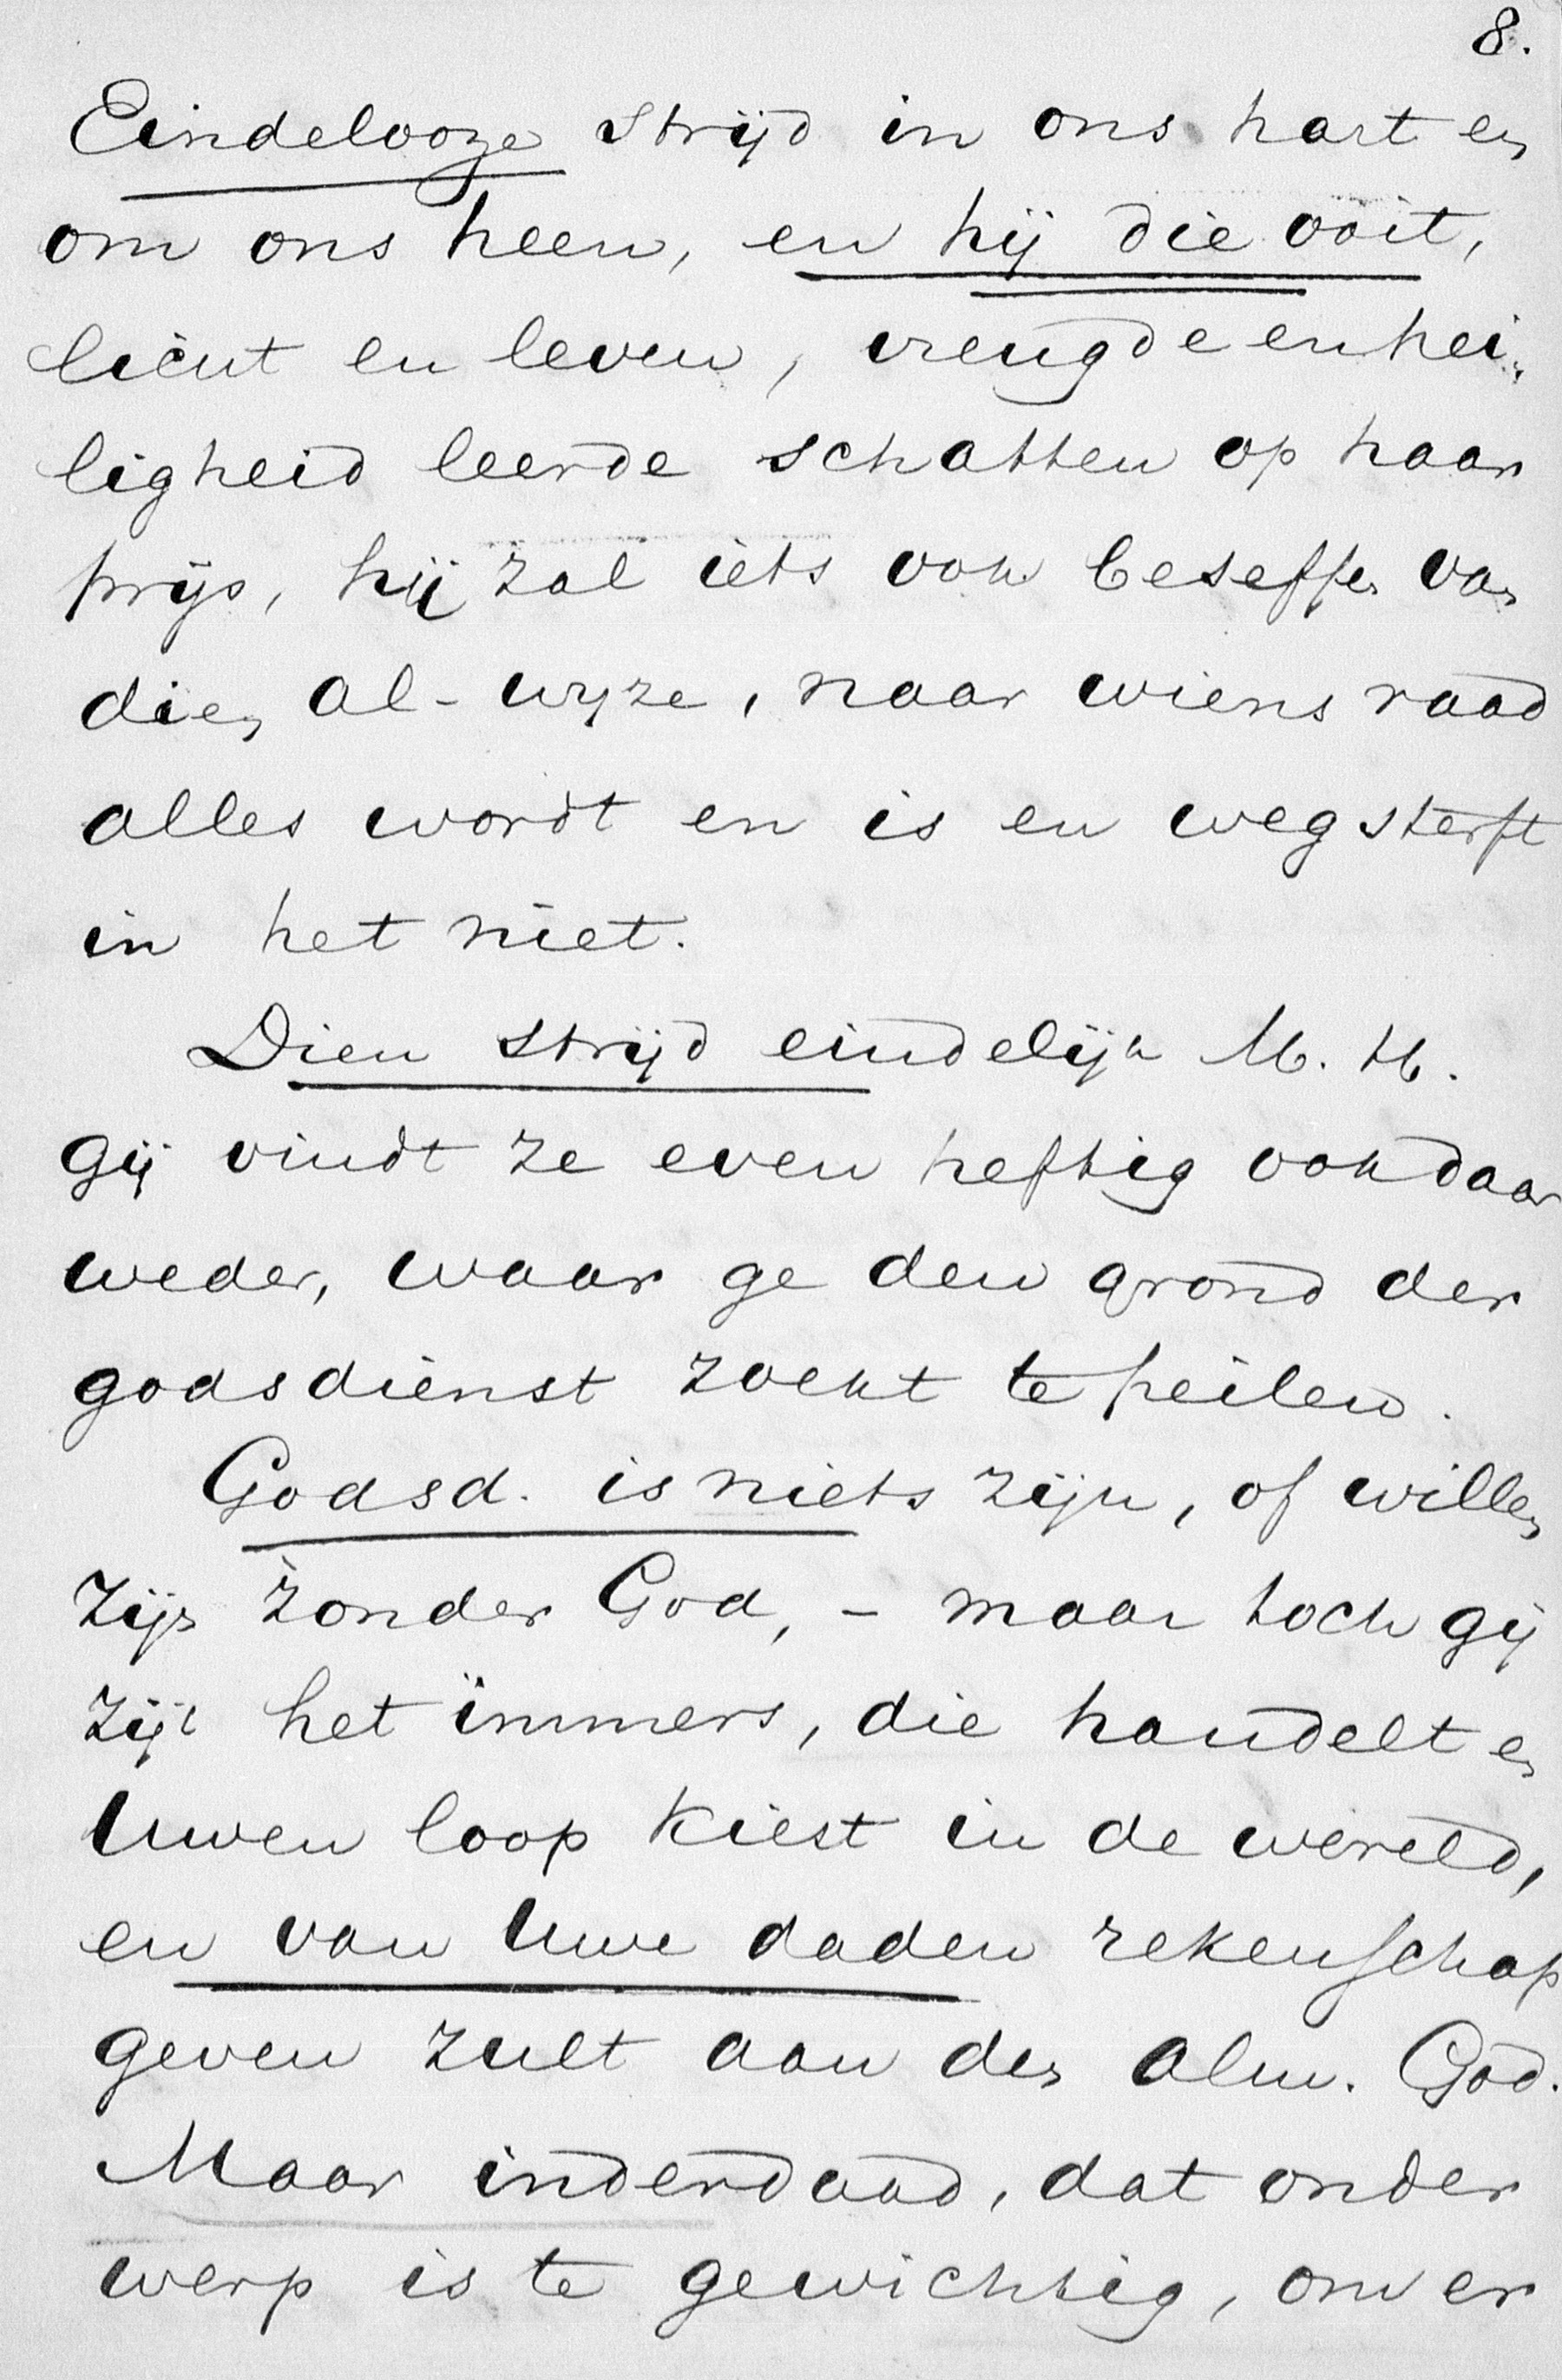 8.
Eindelooze strijd in ons hart en
om ons heen, en hij die ooit,
licht en leven, vreugde en hei-
ligheid leerde schatten op haar
prijs, hij zal iets ook beseffen van
dien al-wijze, naar wiens raad
alles wordt en is en wegsterft
in het niet.
Dien strijd eindelijk M. H.
gij vindt ze even heftig ook daar
weder, waar ge den grond der
godsdienst zoekt te peilen.
Godsd. is niets zijn, of willen
zijn zonder God, - maar toch gij
zijt het immers, die handelt en
Uwen loop kiest in de wereld,
en van Uwe daden rekenschap
geven zult aan den Alm. God.
Maar inderdaad, dat onder
werp is te gewichtig, om er